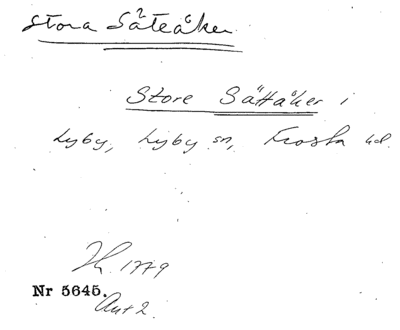 Stora Såteåker
Store Såttåker i
Lyby, Lyby sn, Frosta hd.
1779
Nr 5645.
Akt 2